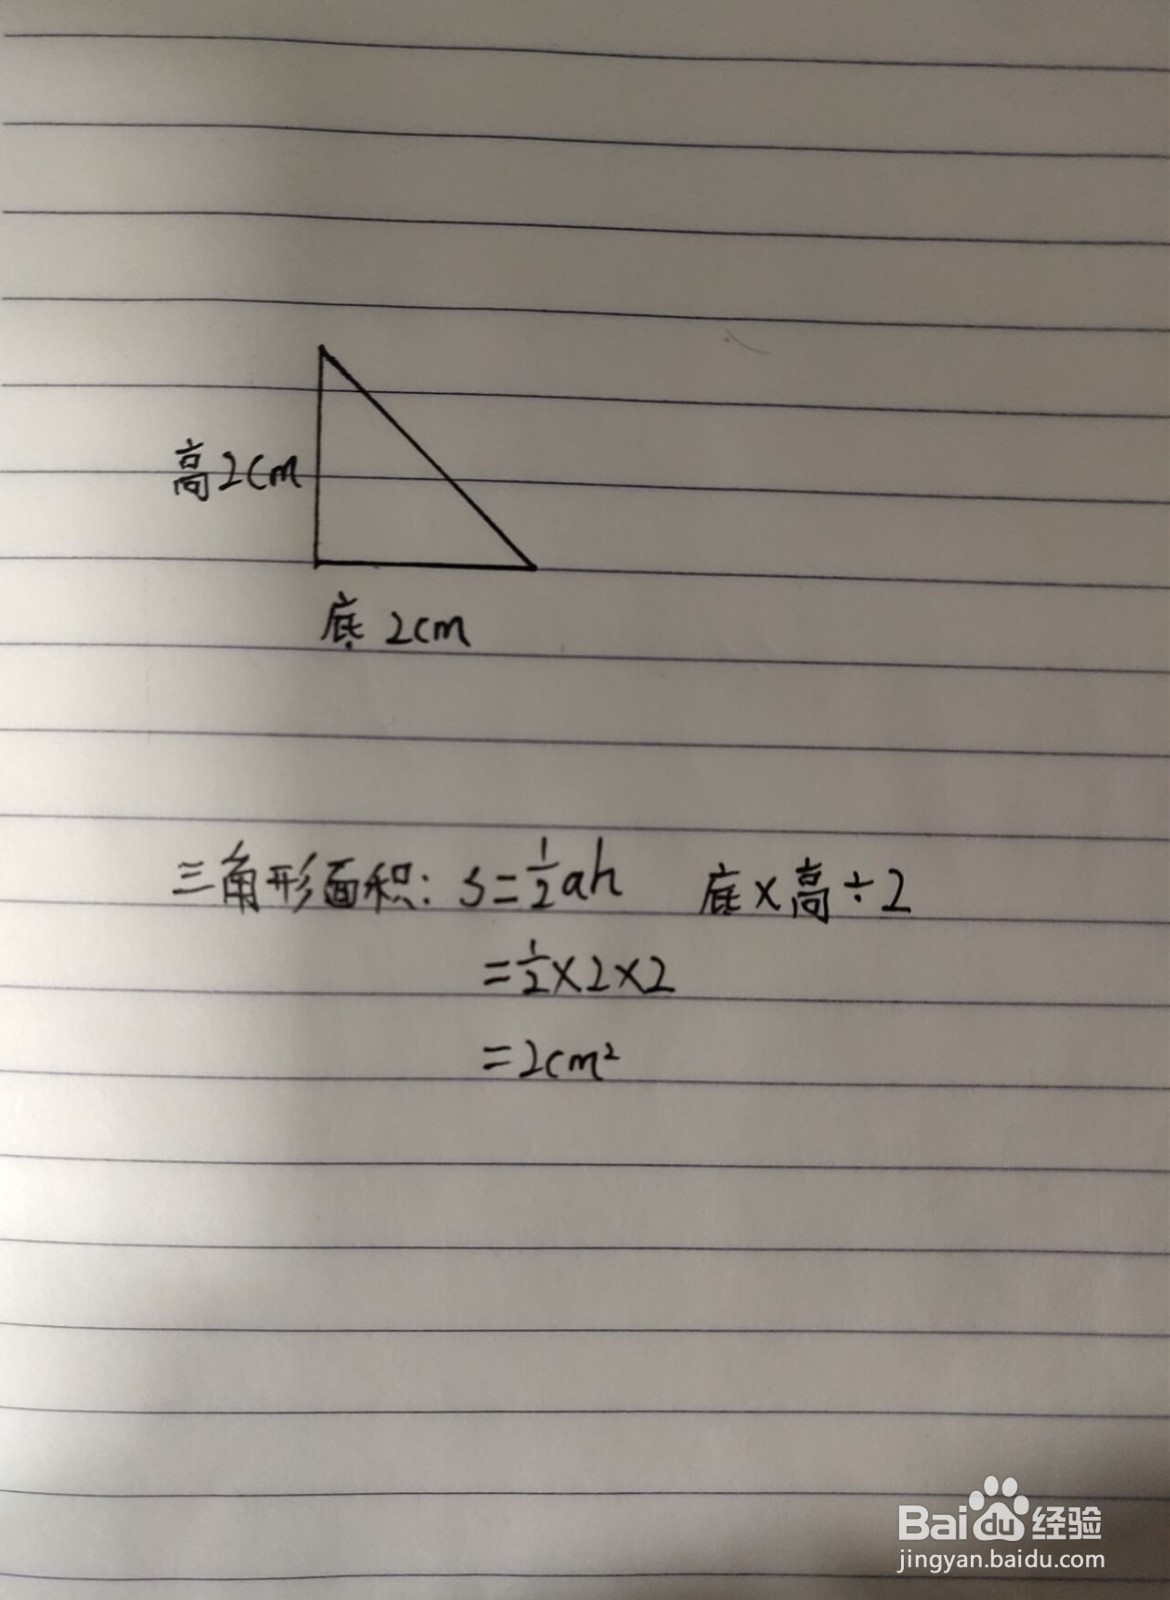 高2cm
底 2cm
三角形面积: S=½ah 底×高÷2
=½×2×2
=2cm²
Baidu经验
jingyan.baidu.com